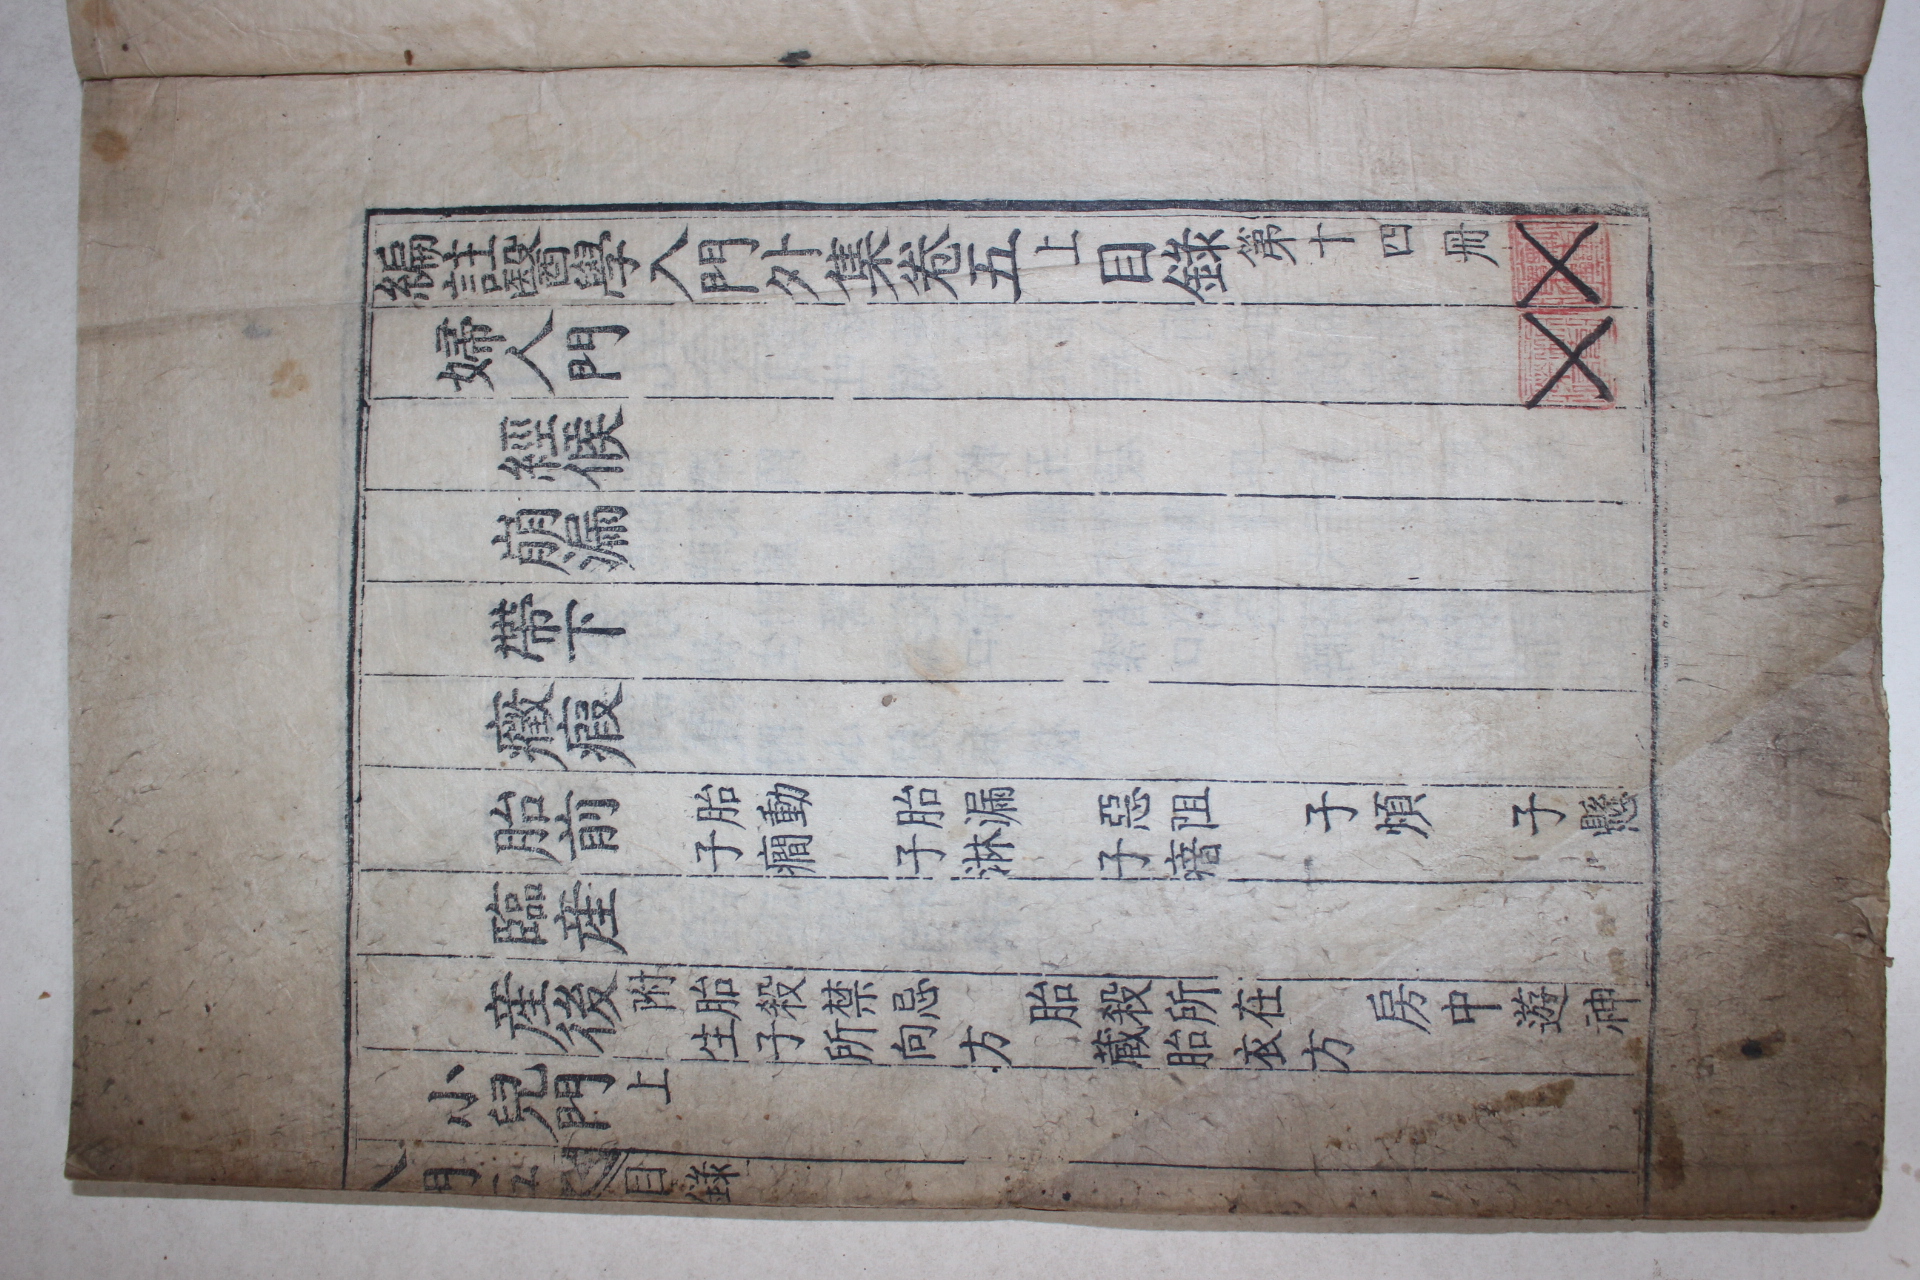 編註醫學入門外集卷五上目錄第十四冊
婦人門
經候
崩漏
帶下
癥瘕
胎前
胎動 胎漏 惡阻 子煩 子懸
子癎 子淋 子瘖
臨産
産後
附胎殺禁忌 胎殺所在 房中遊神
生子所向方 蔵胎衣方
小兒門上
入門五 目錄